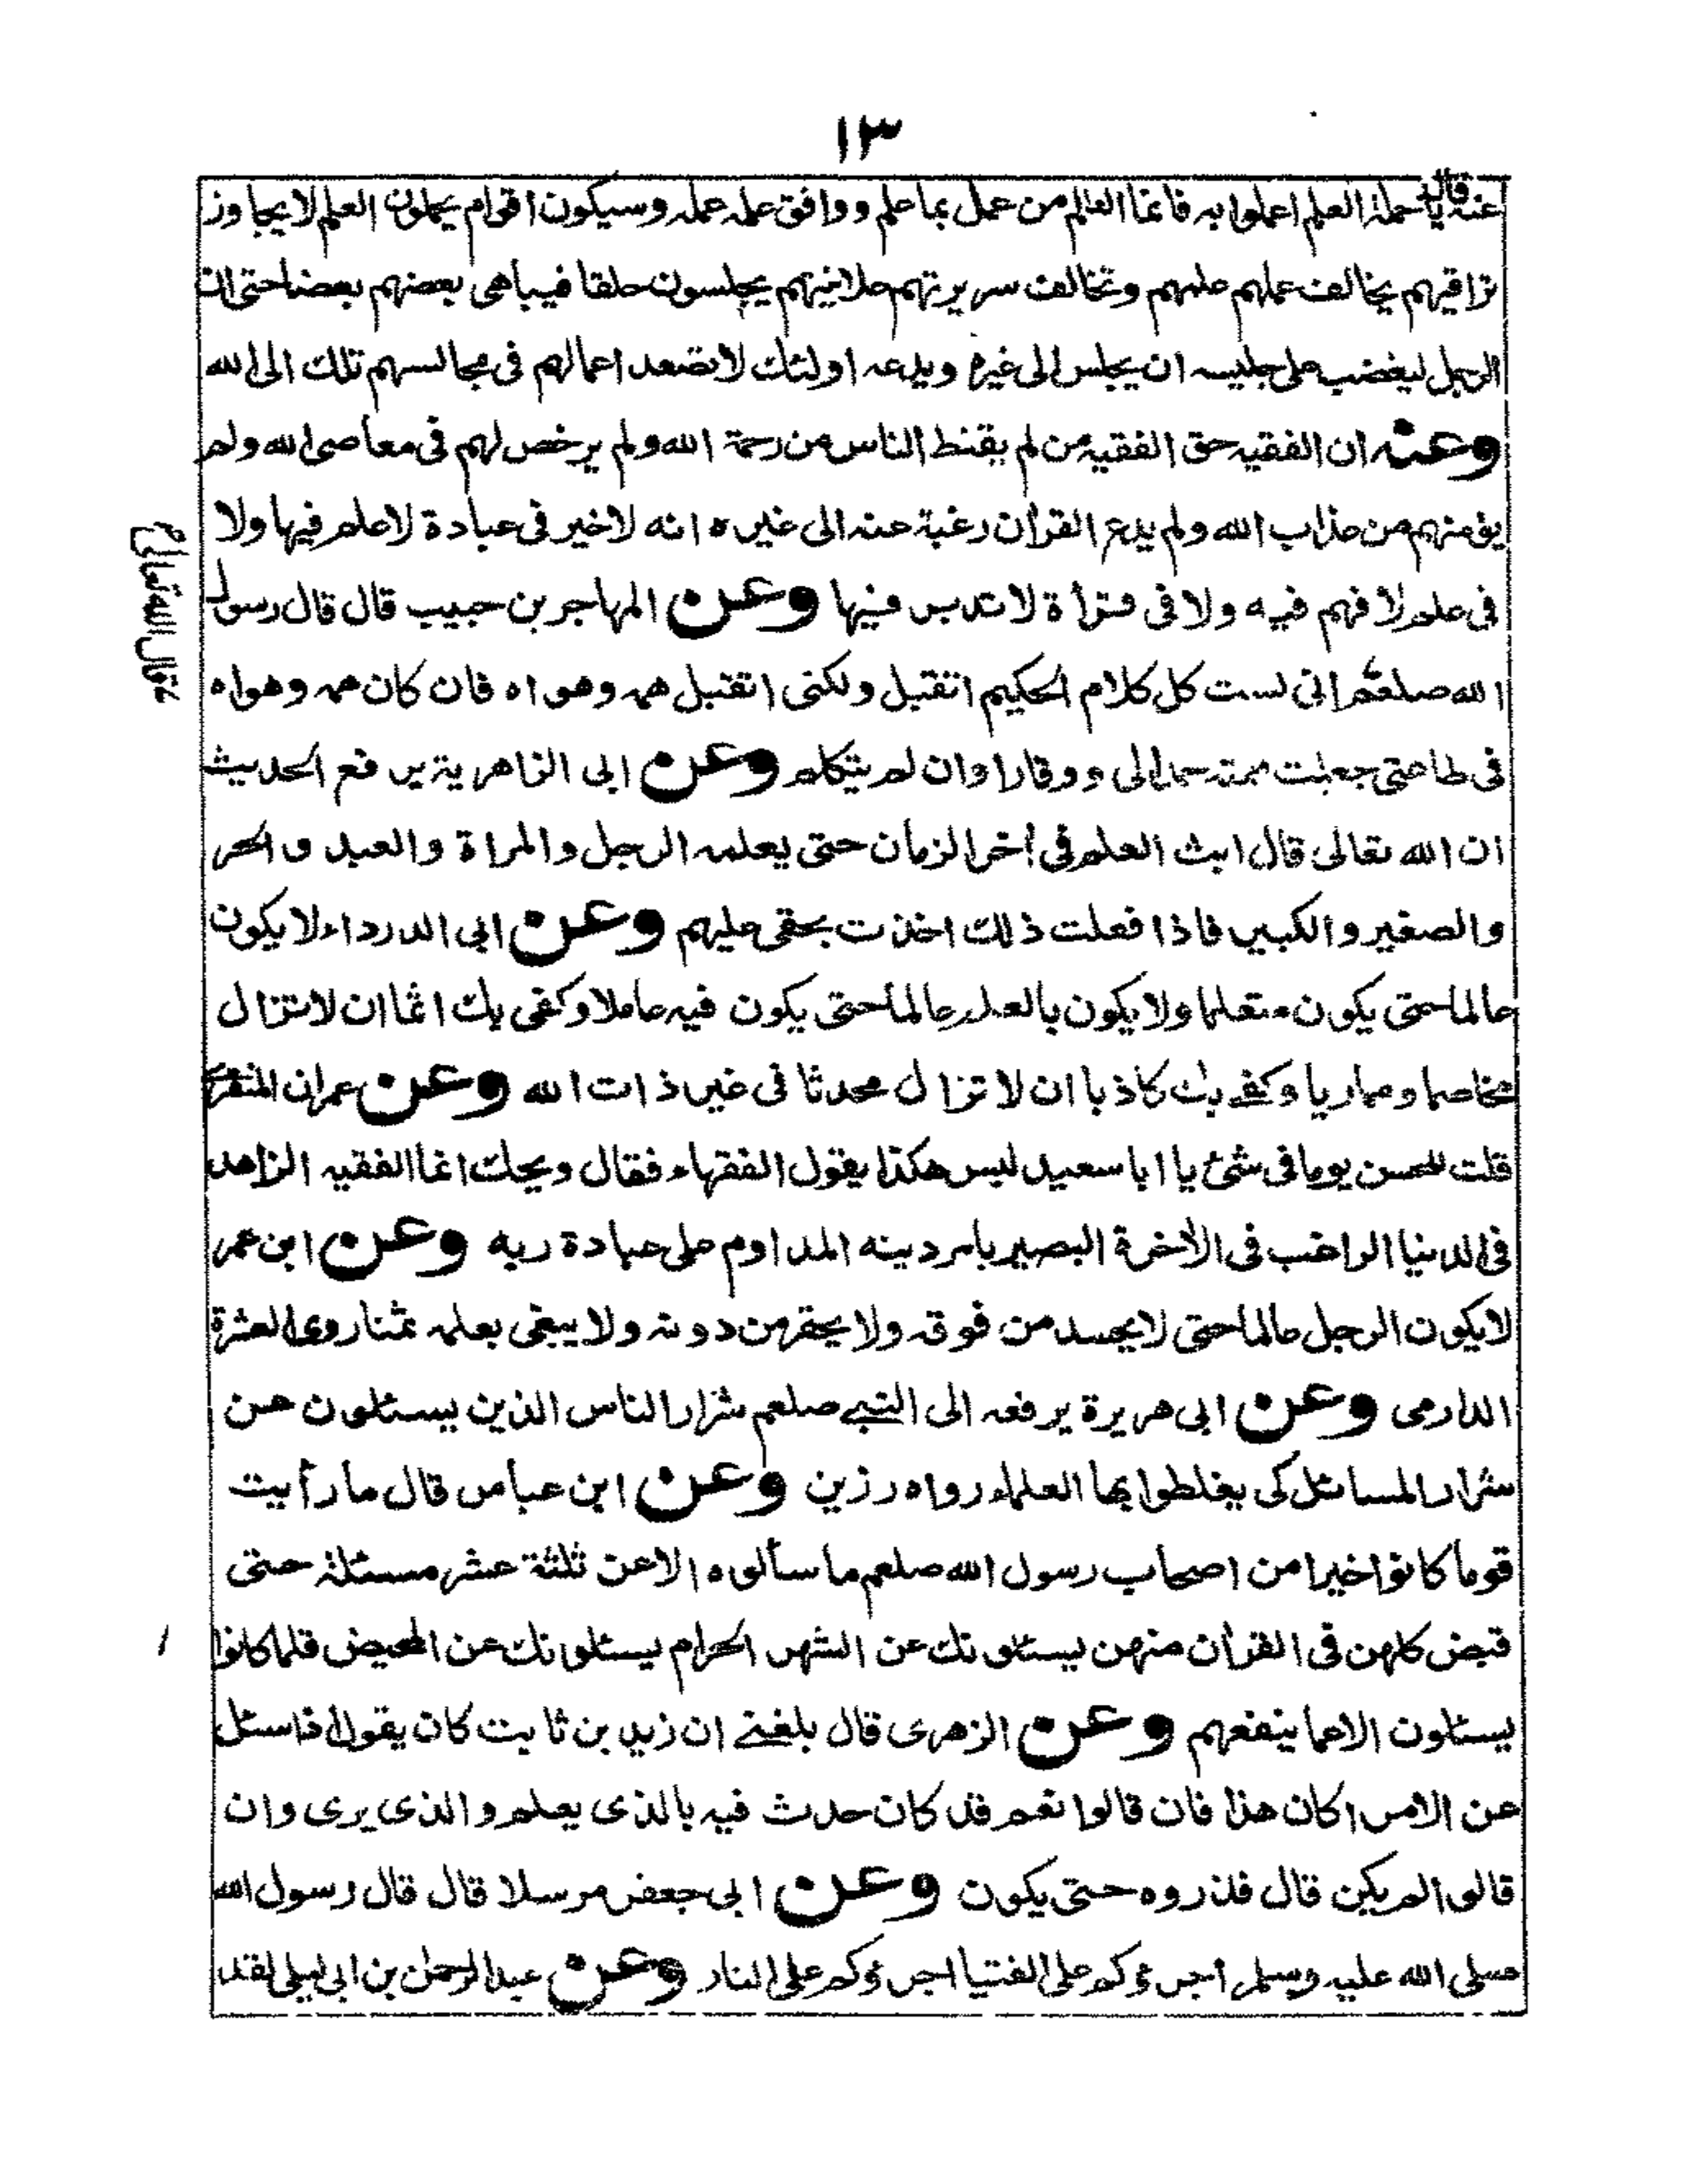 ١٣
عنه قال يا حملة العلم اعملوا به فانما العالم من عمل بما علم ووافق علمه عمله وسيكون اقوام يحملون العلم لا يجاوز
تراقيهم يخالف عملهم علمهم وتخالف سريرتهم علانيتهم يجلسون حلقا فيباهى بعضهم بعضا حتى ان
الرجل ليغضب على جليسه ان يجلس الى غيره ويدعه اولئك لا تصعد اعمالهم فى مجالسهم تلك الى الله
وعنه ان الفقيه حق الفقيه من لم يقنط الناس من رحمة الله ولم يرخص لهم فى معاصى الله ولم
يؤمنهم من عذاب الله ولم يدع القرأن رغبة عنه الى غيره انه لا خير فى عبادة لا علم فيها ولا
فى علم لا فهم فيه ولا فى قرأة لا تدبر فيها وعن المهاجر بن حبيب قال قال رسول
الله صلعم انى لست كل كلام الحكيم اتقبل ولكنى اتقبل همه وهواه فان كان همه وهواه
عه قال الله تعالى ع
فى طاعتى جعلت صمته حمدا لى ووقارا وان لم يتكلم وعن ابى الزاهرية يرفع الحديث
ان الله تعالى قال ابث العلم فى أخر الزمان حتى يعلمه الرجل والمراة والعبد والحر
والصغير والكبير فاذا فعلت ذلك اخذت بحقى عليهم وعن ابى الدرداء لا يكون
عالما حتى يكون متعلما ولا يكون بالعلم عالما حتى يكون فيه عاملا وكفى بك اثما ان لا تزال
مخاصما ومماريا وكفى بك كاذبا ان لا تزال محدثا فى غير ذات الله وعن عمران المنقرى
قلت للحسن يوما فى شئ يا ابا سعيد ليس هكذا يقول الفقهاء فقال ويحك انما الفقيه الزاهد
فى الدنيا الراغب فى الأخرة البصير بامر دينه المداوم على عبادة ربه وعن ابن عمر
لا يكون الرجل عالما حتى لا يحسد من فوقه ولا يحقر من دونه ولا يبغى بعلمه ثمنا روى العشرة
الدارمى وعن ابى هريرة يرفعه الى النبى صلعم شرار الناس الذين يسئلون عن
شرار المسائل كى يغلطوا بها العلماء رواه رزين وعن ابن عباس قال ما رأيت
قوما كانوا خيرا من اصحاب رسول الله صلعم ما سألوه الا عن ثلثة عشر مسئلة حتى
قبض كلهن فى القرأن منهن يسئلونك عن الشهر الحرام يسئلونك عن المحيض قلما كانوا
يسئلون الا عما ينفعهم وعن الزهرى قال بلغنى ان زيد بن ثابت كان يقول اذا سئل
عن الامر اكان هذا فان قالوا نعم قد كان حدث فيه بالذى يعلم والذى يرى وان
قالوا لم يكن قال فذروه حتى يكون وعن ابى جعفر مرسلا قال قال رسول الله
صلى الله عليه وسلم أجرؤكم على الفتيا اجرؤكم على النار وعن عبد الرحمن بن ابى ليلى لقد